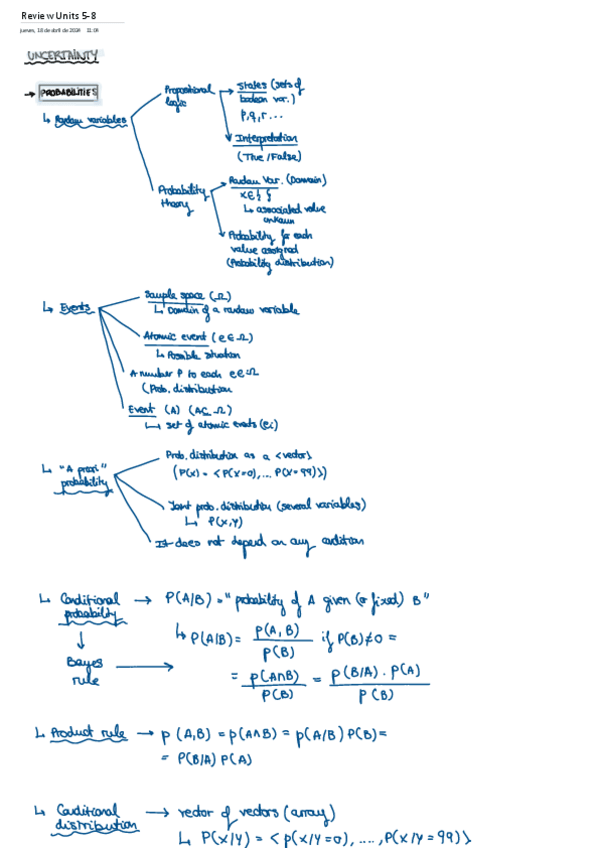 Review Units 5-8
jueves, 18 de abril de 2024 11:09
UNCERTAINTY
→ PROBABILITIES
↳ Random variables
Propositional logic
→ States (sets of
boolean var.)
p,q,r...
→ Interpretation
(True/False)
Probability
theory
→ Random Var. (Domain)
x∈{ }
↳ associated value
unknown
→ Probability for each
value assigned
(Probability distribution)
↳ Events
Sample space (Ω)
↳ Domain of a random variable
Atomic event (e∈Ω)
↳ Possible situation
A number P to each e∈Ω
(Prob. distribution
Event (A) (A⊂Ω)
↳ set of atomic events (ei)
↳ "A priori"
probability
Prob. distribution as a <vector>
(P(X) = <P(X=0),... P(X=99)>)
Joint prob. distribution (several variables)
↳ P(X,Y)
It does not depend on any condition
↳ Conditional
probability
→ P(A/B) = "probability of A given (or fixed) B"
↳ P(A/B) = P(A,B) / P(B) if P(B)≠0 =
↓
Bayes
rule →
= P(A∩B) / P(B) = P(B/A) . P(A) / P(B)
↳ Product rule → P(A,B) = P(A∧B) = P(A/B) P(B) =
= P(B/A) P(A)
↳ Conditional
distribution
→ vector of vectors (array)
↳ P(X/Y) = <P(X/Y=0), ...., P(X/Y=99)>